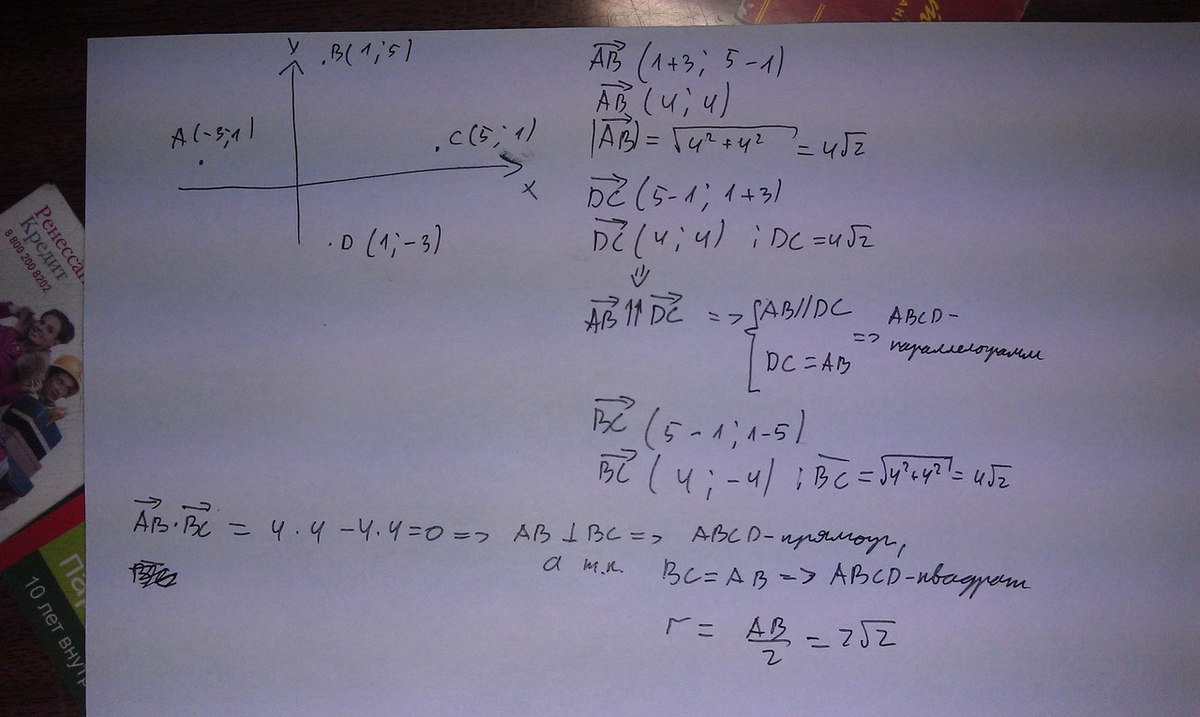 B(1;5)
y
A(-3;1)
C(5;1)
x
D(1;-3)
AB (1+3; 5-1)
AB (4; 4)
|AB| = √4²+4² = 4√2
DC (5-1; 1+3)
DC (4; 4) ; DC = 4√2
⇓
AB ↑↑ DC => { AB//DC
DC = AB
=> ABCD-
параллелограмм
BC (5-1; 1-5)
BC (4; -4) ; BC = √4²+4² = 4√2
AB·BC = 4·4 -4·4=0 => AB ⊥ BC => ABCD-прямоуг,
а т.к. BC = AB => ABCD-квадрат
r = AB/2 = 2√2
Ренессан
Кредит
8 800 200 8202
10 лет внутр